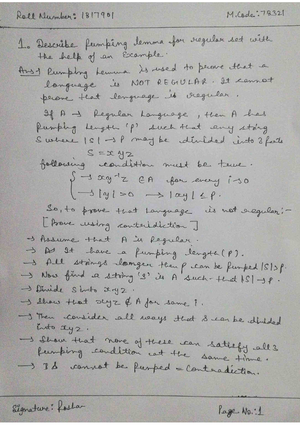 Roll Number: 1817901 M.Code: 78321
1. Describe Pumping lemma for regular set with
the help of an Example.
Ans:- Pumping Lemma is used to prove that a
language is NOT REGULAR. It cannot
prove that language is regular.
If A → Regular Language, then A has
Pumping length 'P' such that any string
S where |S| → P may be divided into 3 parts
S = xyz
following condition must be true.
→ xyⁱz ∈ A for every i→0
→ |y| > 0 → |xy| ≤ P.
So, to prove that language is not regular:-
[Prove using contridiction]
→ Assume that A is Regular.
→ At It have a pumping length (P).
→ All strings longer than P can be Pumped |S|→P.
→ Now find a string 'S' is A such that |S|→P.
→ Divide S into xyz.
→ Show that xyⁱz ∉ A for some i.
→ Then consider all ways that S can be divided
into xyz.
→ Show that none of these can satisfy all 3
Pumping condition at the same time.
→ I S cannot be Pumped = Contradiction.
Signature: Roshan Page No:1